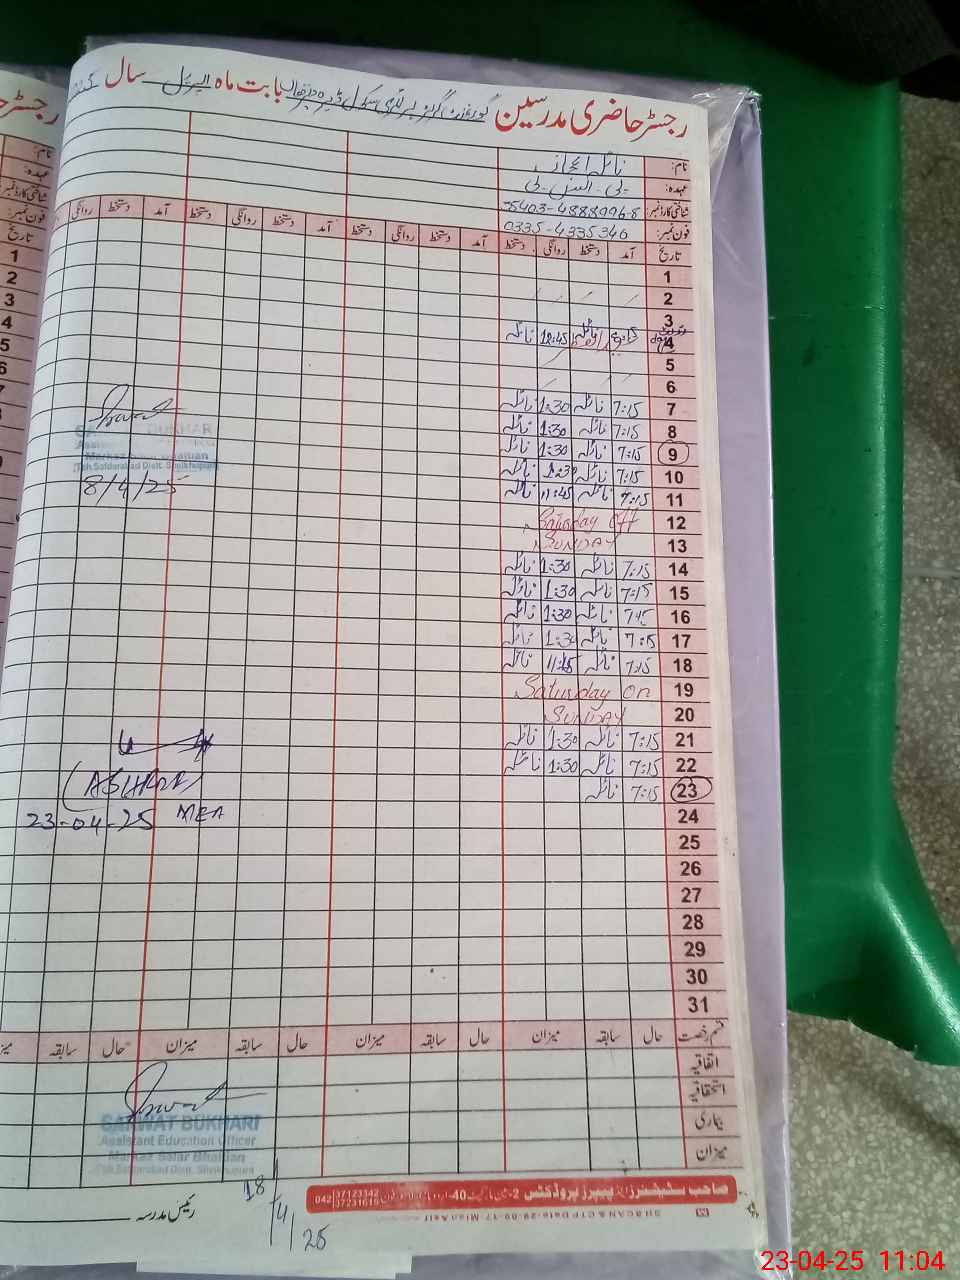 رجسٹر حاضری مدرسین گورنمنٹ گرلز پرائمری سکول ڈیرہ بابت ماہ اپریل سال
نام: نائلہ اعجاز
عہدہ: پی۔ایس۔ٹی
شناختی کارڈ نمبر:
فون نمبر: 0335-4335346
تاریخ آمد دستخط روانگی دستخط آمد دستخط روانگی دستخط آمد دستخط روانگی دستخط آمد دستخط روانگی
1
2
3
4 8:15 نائلہ 12:45 نائلہ
5
6
7 7:15 نائلہ 1:30 نائلہ
8 7:15 نائلہ 1:30 نائلہ
9 7:15 نائلہ 1:30 نائلہ
10 7:15 نائلہ 1:30 نائلہ
11 7:15 نائلہ 11:45 نائلہ
12 Saturday off
13 SUNDAY
14 7:15 نائلہ 1:30 نائلہ
15 7:15 نائلہ 1:30 نائلہ
16 7:15 نائلہ 1:30 نائلہ
17 7:15 نائلہ 1:30 نائلہ
18 7:15 نائلہ 11:45 نائلہ
19 Saturday on
20 SUNDAY
21 7:15 نائلہ 1:30 نائلہ
22 7:15 نائلہ 1:30 نائلہ
23 7:15 نائلہ
24
25
26
27
28
29
30
31
BUKHARI
Markaz Salar Bhattian
Teh Safdarabad Distt. Sheikhupura
8/4/25
(ASHRAF)
23-04-25 MEA
قسم رخصت حال سابقہ میزان حال سابقہ میزان حال سابقہ میزان حال سابقہ
اتفاقیہ
استحقاقیہ
بیماری
میزان
SARWAT BUKHARI
Assistant Education Officer
Markaz Salar Bhattian
Teh Safdarabad Distt. Sheikhupura
18/4/25
رئیس مدرسہ
صاحب سٹیشنرز اینڈ پیپرز پروڈکٹس
042 37123342
37231619
رجسٹر
نام:
عہدہ:
شناختی کارڈ نمبر
فون نمبر:
تاریخ
1
2
3
4
5
6
23-04-25 11:04